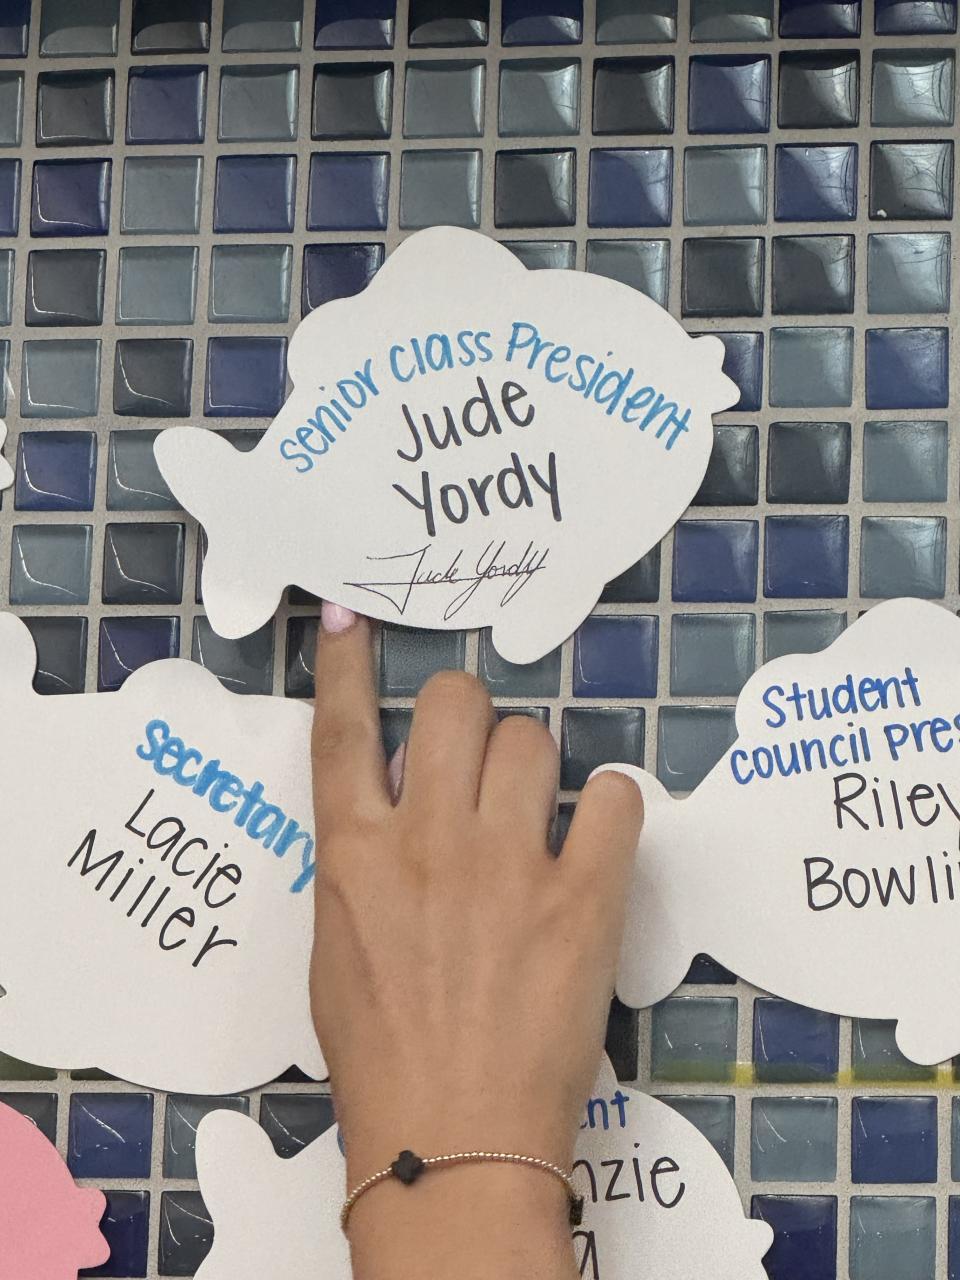 senior class President
Jude
Yordy
Jude Yordy
secretary
Lacie
Miller
Student
council
Riley